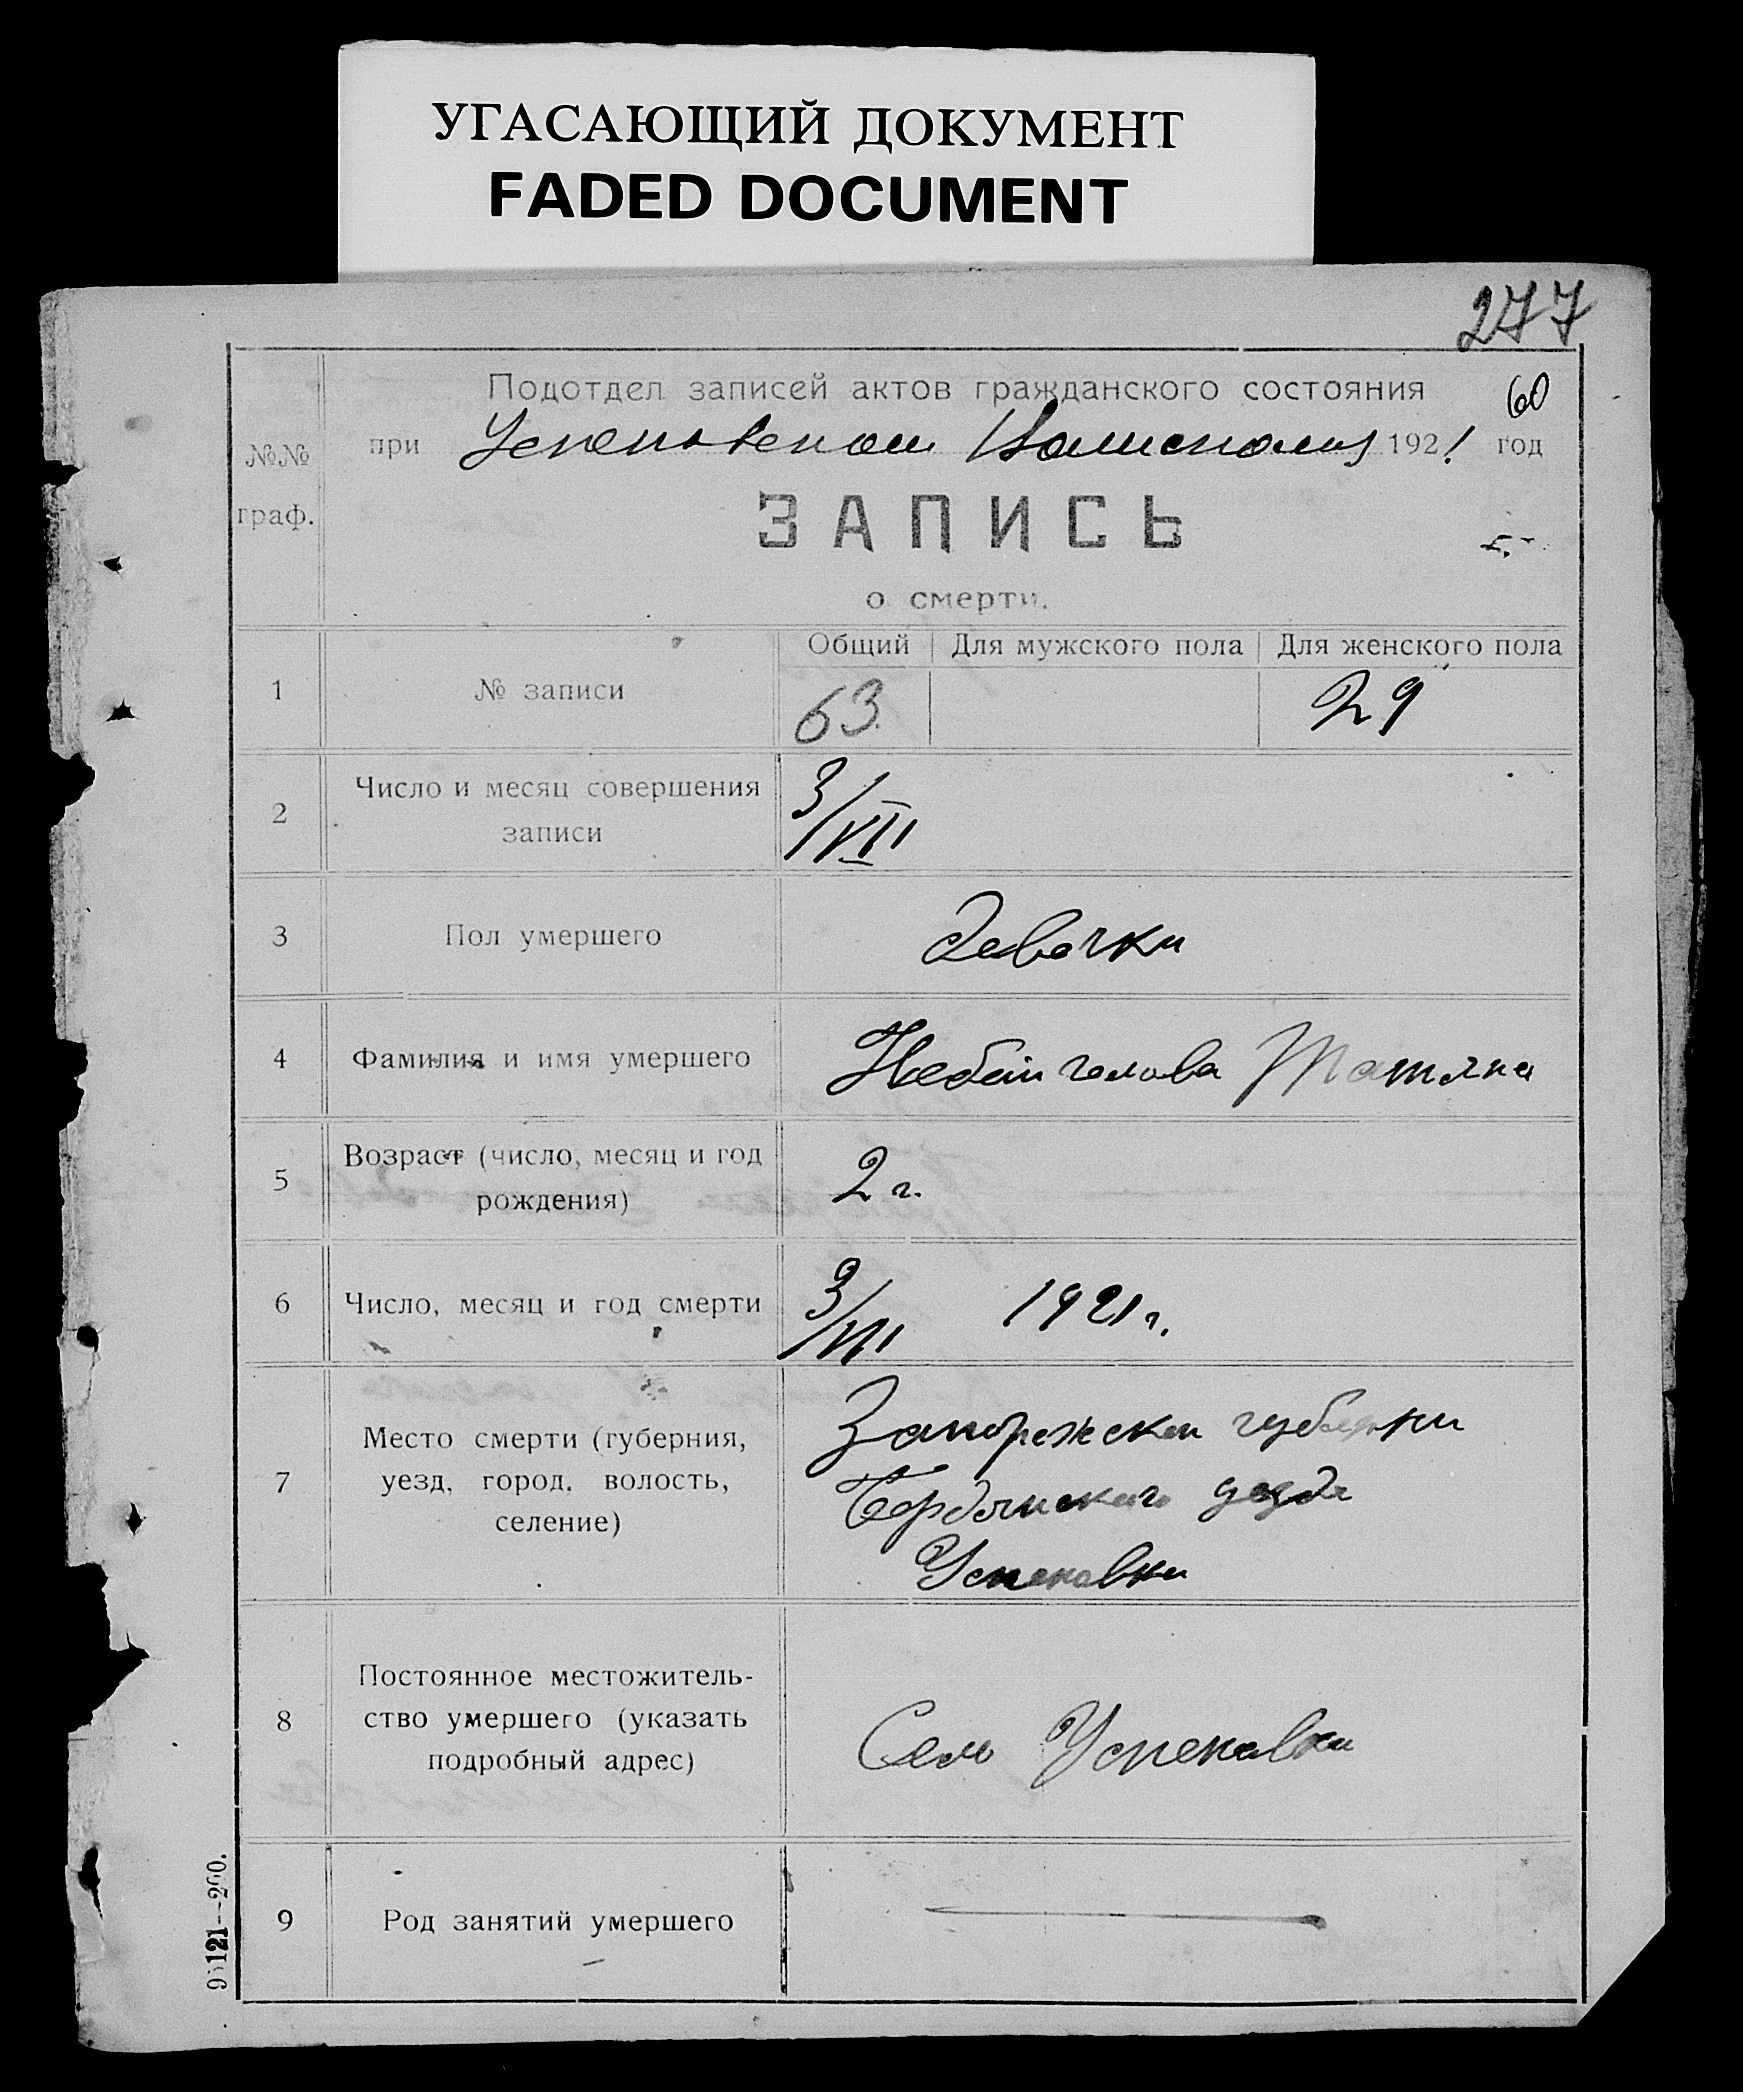 УГАСАЮЩИЙ ДОКУМЕНТ
FADED DOCUMENT
277
60
Подотдел записей актов гражданского состояния
№№ граф.
при 1921 год
ЗАПИСЬ
о смерти.
Общий Для мужского пола Для женского пола
1 № записи 63 29
2 Число и месяц совершения
записи 3/VII
3 Пол умершего Девочки
4 Фамилия и имя умершего Татяна
5 Возраст (число, месяц и год
рождения) 2 г.
6 Число, месяц и год смерти 3/VII 1921 г.
7 Место смерти (губерния,
уезд, город, волость,
селение)
Запорежской губернии
Бердянского уезда
Успеновки
8 Постоянное местожитель-
ство умершего (указать
подробный адрес)
Село Успеновки
9 Род занятий умершего